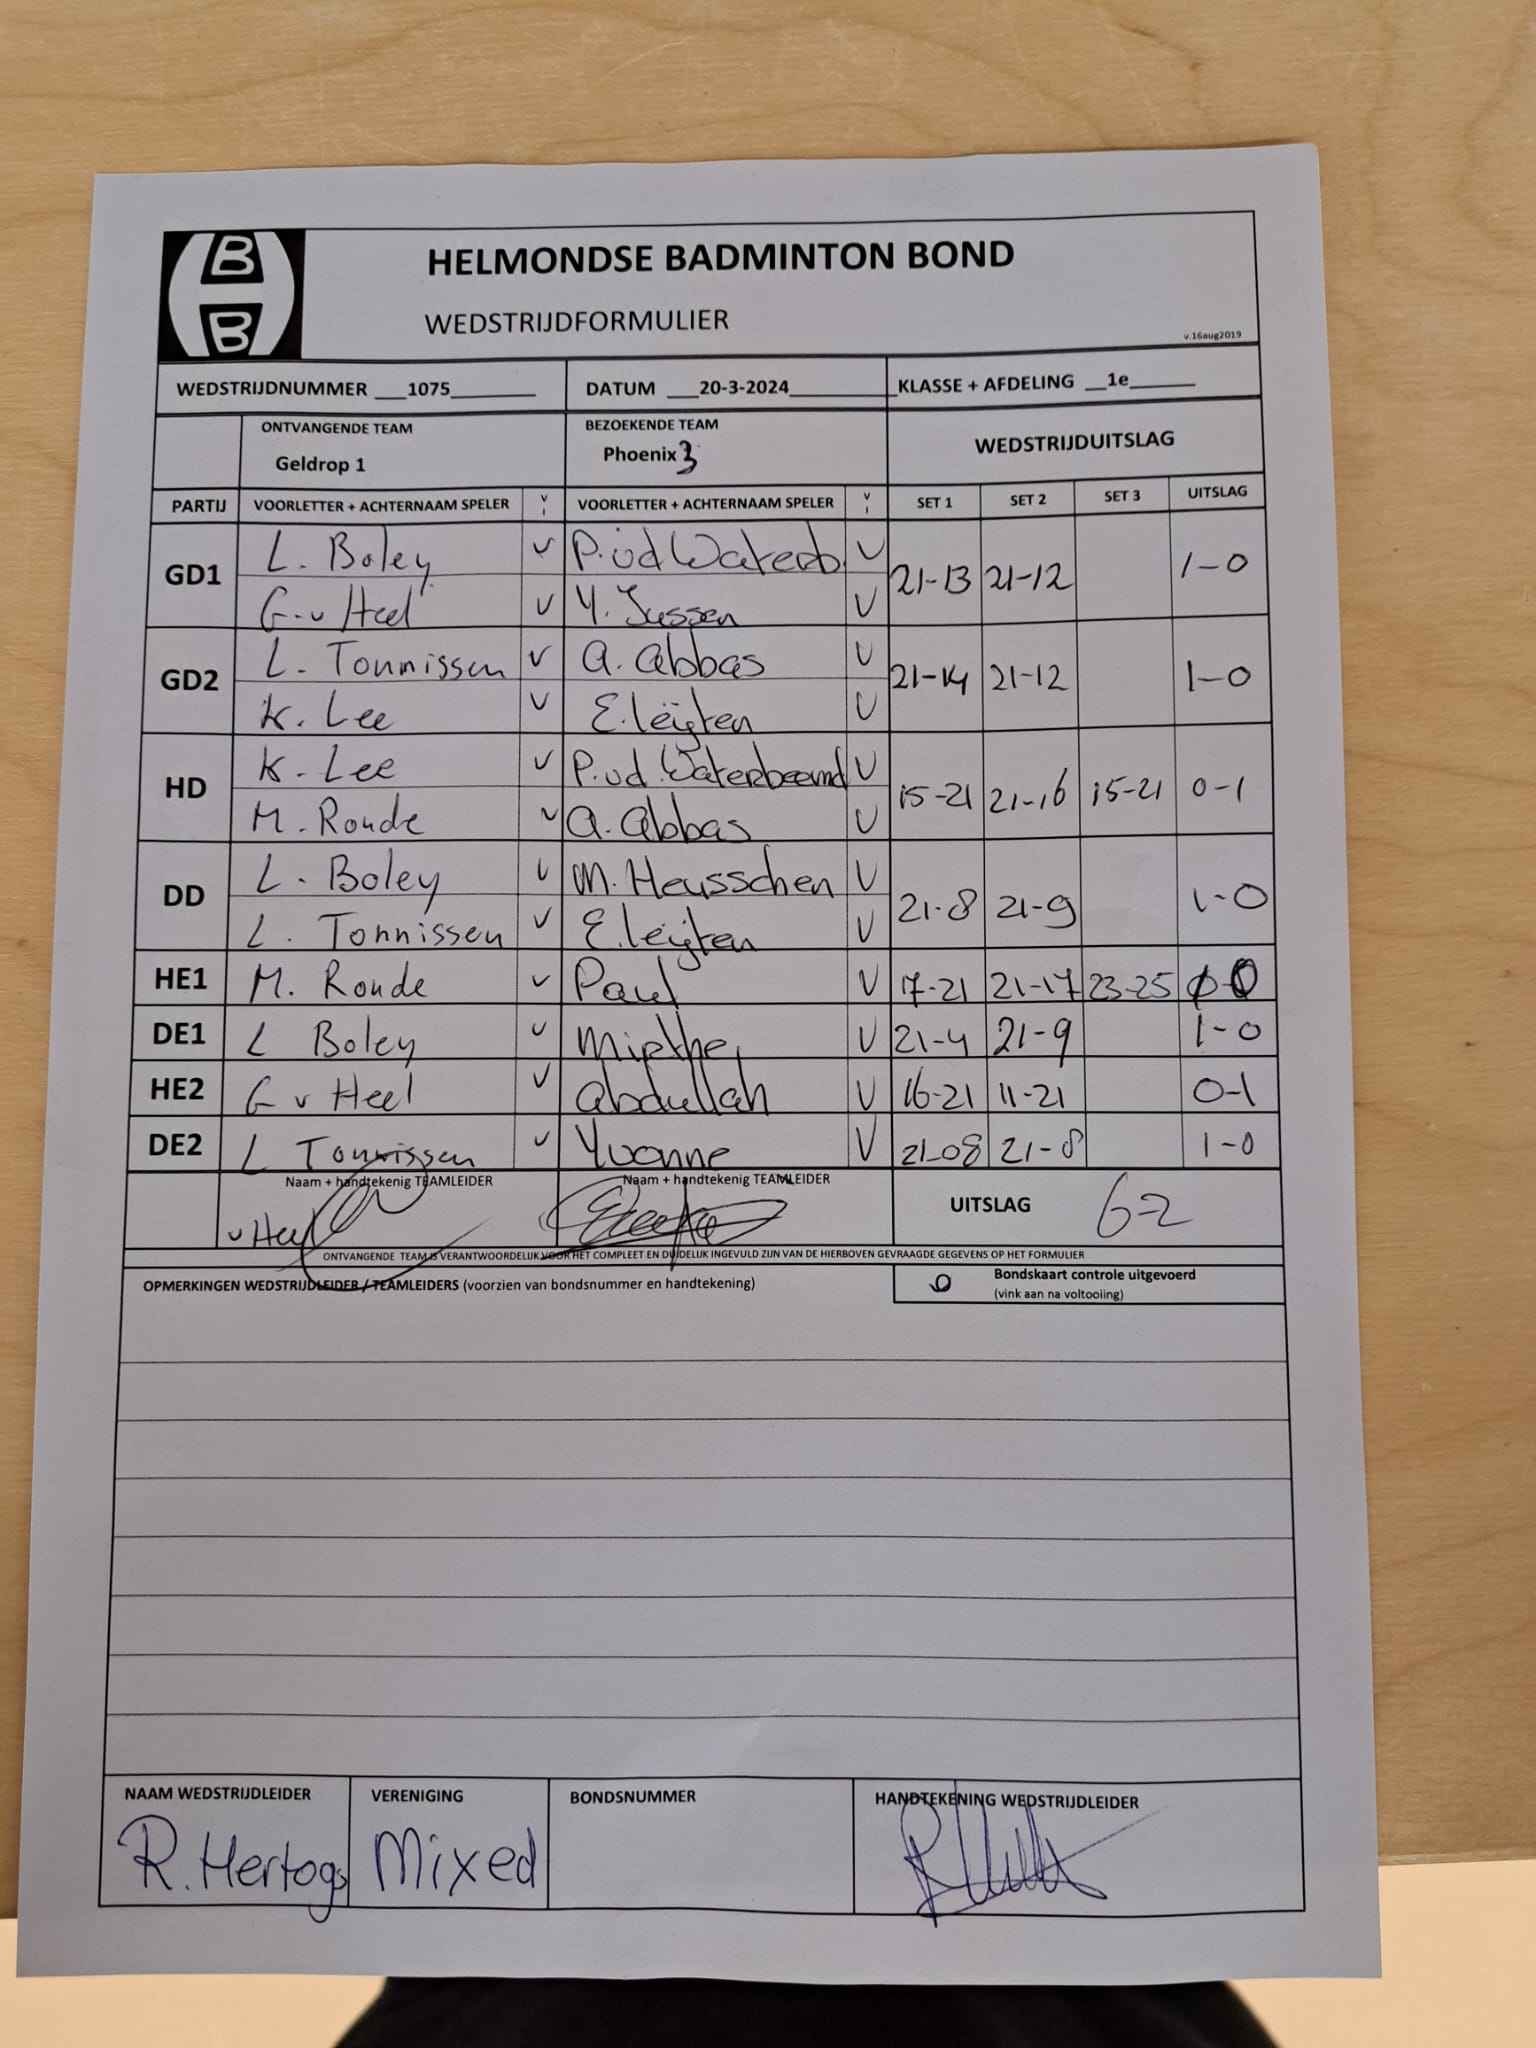 B
B
HELMONDSE BADMINTON BOND
WEDSTRIJDFORMULIER
v.16aug2019
WEDSTRIJDNUMMER ___1075________ DATUM ___20-3-2024_________ KLASSE + AFDELING __1e______
ONTVANGENDE TEAM BEZOEKENDE TEAM WEDSTRIJDUITSLAG
Geldrop 1 Phoenix 3
PARTIJ VOORLETTER + ACHTERNAAM SPELER V VOORLETTER + ACHTERNAAM SPELER V SET 1 SET 2 SET 3 UITSLAG
GD1 L. Boley v P.vd Waterb v 21-13 21-12 1-0
G. v Heel v Y. Jussen v
GD2 L. Tonnissen v A. Abbas v 21-14 21-12 1-0
K. Lee v E. Leijten v
HD K. Lee v P.vd. Waterbeemd v 15-21 21-16 15-21 0-1
M. Ronde v A. Abbas v
DD L. Boley v M. Heusschen v 21-8 21-9 1-0
L. Tonnissen v E. Leijten v
HE1 M. Ronde v Paul v 17-21 21-17 23-25
DE1 L Boley v Mirthe v 21-4 21-9 1-0
HE2 G v Heel v Abdullah v 16-21 11-21 0-1
DE2 L Tonnissen v Yvonne v 21-08 21-8 1-0
Naam + handtekenig TEAMLEIDER Naam + handtekenig TEAMLEIDER UITSLAG 6-2
v Heel
ONTVANGENDE TEAM IS VERANTWOORDELIJK VOOR HET COMPLEET EN DUIDELIJK INGEVULD ZIJN VAN DE HIERBOVEN GEVRAAGDE GEGEVENS OP HET FORMULIER
OPMERKINGEN WEDSTRIJDLEIDER / TEAMLEIDERS (voorzien van bondsnummer en handtekening) Bondskaart controle uitgevoerd
(vink aan na voltooiing)
NAAM WEDSTRIJDLEIDER VERENIGING BONDSNUMMER HANDTEKENING WEDSTRIJDLEIDER
R. Hertogs Mixed